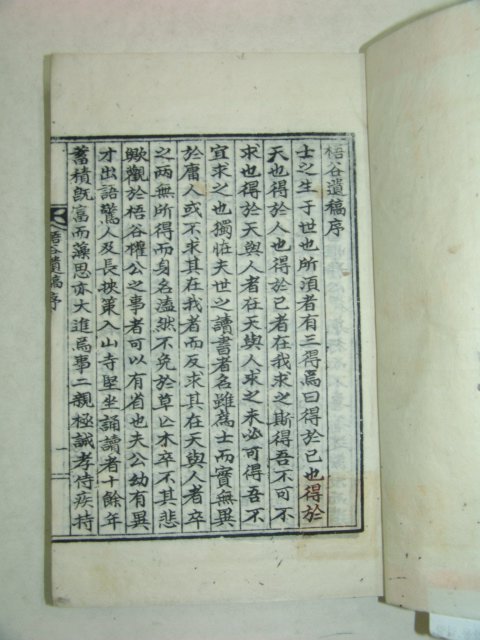 梧谷遺稿序
士之生于世也所湏者有三得焉曰得於己也得於
天也得於人也得於己者在我求之斯得吾不可不
求也得於天與人者在天與人求之未必可得吾不
宜求之也獨恠夫世之讀書者名雖爲士而實無異
於庸人或不求其在我者而反求其在天與人者卒
之兩無所得而身名溘然不免於草亡木卒不其悲
歟觀於梧谷權公之事者可以有省也夫公幼有異
才出語驚人及長挾策入山寺堅坐誦讀者十餘年
蓄積旣富而藻思亦大進爲事二親極誠孝侍疾持
梧谷遺稿序
一